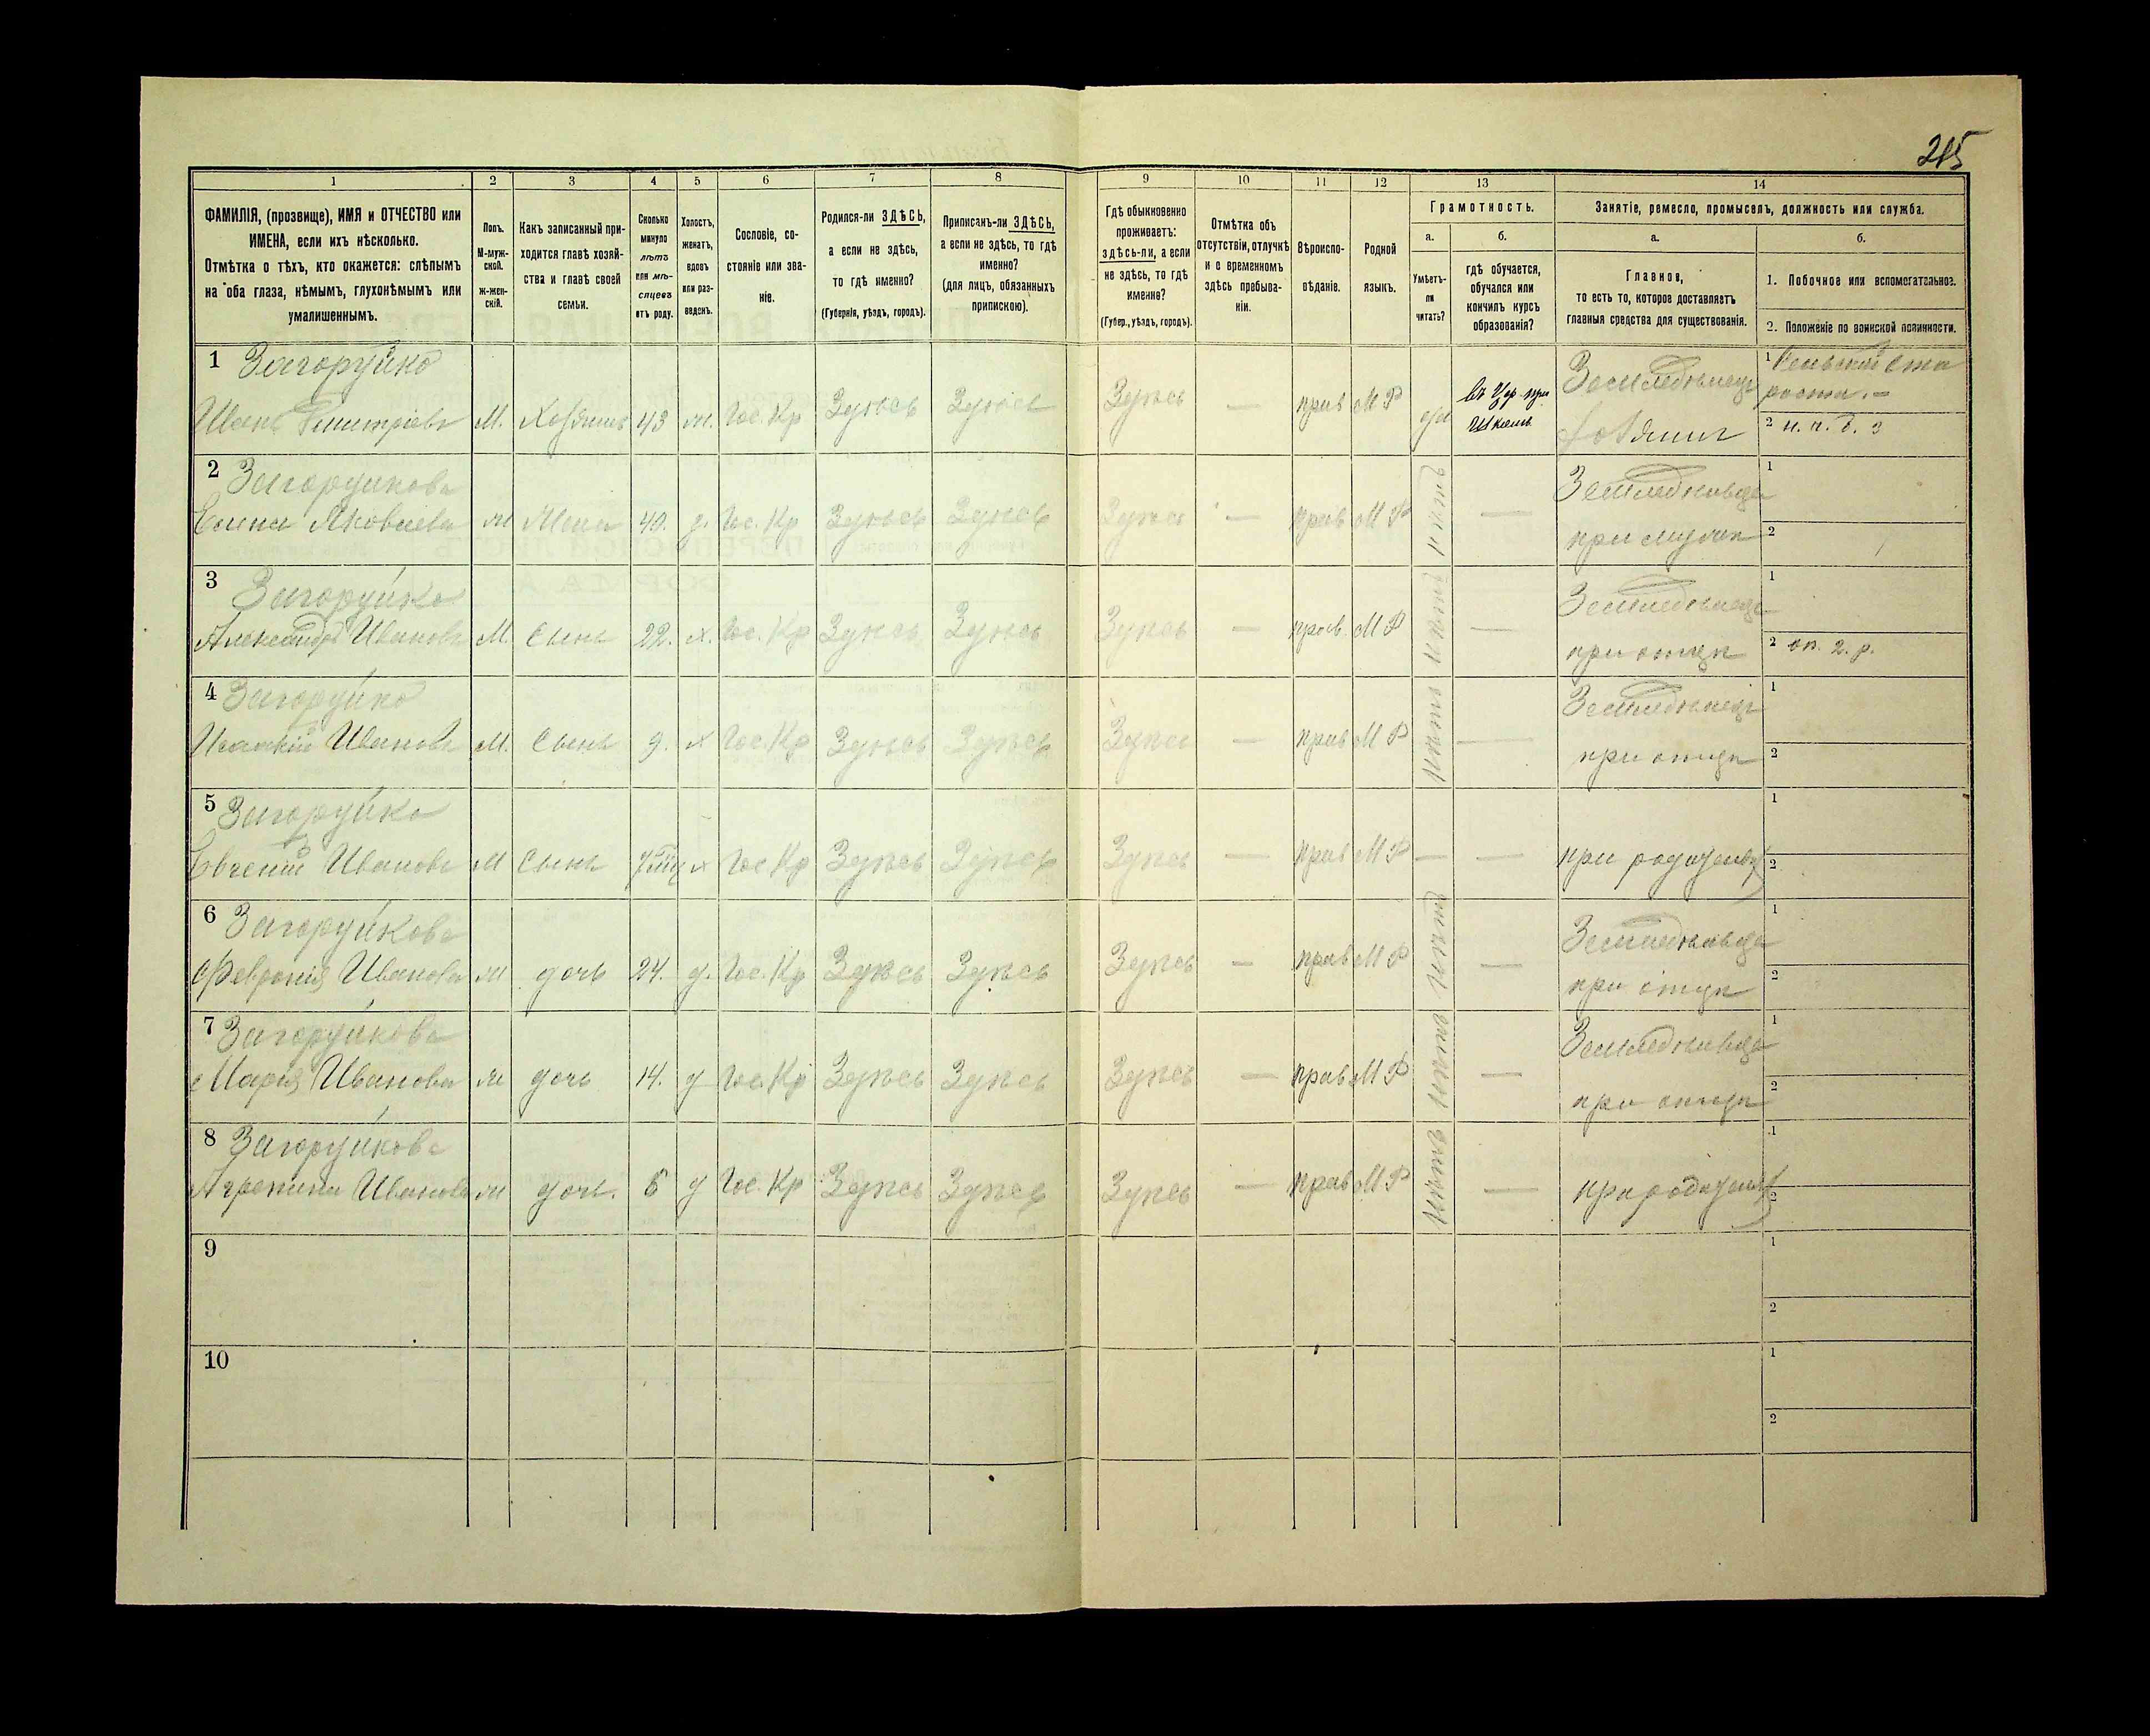 215
1 2 3 4 5 6 7 8 9 10 11 12 13 14
ФАМИЛІЯ, (прозвище), ИМЯ и ОТЧЕСТВО или
ИМЕНА, если ихъ нѣсколько.
Отмѣтка о тѣхъ, кто окажется: слѣпымъ
на оба глаза, нѣмымъ, глухонѣмымъ или
умалишеннымъ.
Полъ.
М-муж-
ской.
ж-жен-
скій.
Какъ записанный при-
ходится главѣ хозяй-
ства и главѣ своей
семьи.
Сколько
минуло
лѣтъ
или мѣ-
сяцевъ
отъ роду.
Холостъ,
женатъ,
вдовъ
или раз-
веденъ.
Сословіе, со-
стояніе или зва-
ніе.
Родился-ли ЗДѢСЬ,
а если не здѣсь,
то гдѣ именно?
(Губернія, уѣздъ, городъ).
Приписанъ-ли ЗДѢСЬ,
а если не здѣсь, то гдѣ
именно?
(для лицъ, обязанныхъ
припискою).
Гдѣ обыкновенно
проживаетъ:
здѣсь-ли, а если
не здѣсь, то гдѣ
именно?
(Губер., уѣздъ, городъ).
Отмѣтка объ
отсутствіи, отлучкѣ
и о временномъ
здѣсь пребыва-
ніи.
Вѣроиспо-
вѣданіе.
Родной
языкъ.
Грамотность.
а.
Умѣетъ-
ли
читать?
б.
гдѣ обучается,
обучался или
кончилъ курсъ
образованія?
Занятіе, ремесло, промыселъ, должность или служба.
а.
Главное,
то есть то, которое доставляетъ
главныя средства для существованія.
б.
1. Побочное или вспомогательное.
2. Положеніе по воинской повинности.
1 Загоруйко Земледѣлецъ 1 Сельскій Ста
роста.
Иванъ Дмитріевъ М. Хозяинъ 43 ж. Гос. Кр Здѣсь Здѣсь Здѣсь — прав М Р да въ Цер. при Школѣ Хозяинъ 2 н. ч. в. 3
2 Загоруйкова Земледѣлица 1
Елена Яковлева ж Жена 40. з. Гос. Кр Здѣсь Здѣсь Здѣсь — прав М Р нѣтъ — при мужѣ 2
3 Загоруйко Земледѣлецъ 1
Александръ Ивановъ М. Сынъ 22. х. Гос. Кр Здѣсь Здѣсь Здѣсь — прав. М Р нѣтъ — при отцѣ 2 оп. 2. р.
4 Загоруйко Земледѣлецъ 1
Исаакій Ивановъ М. Сынъ 9. х Гос. Кр Здѣсь Здѣсь Здѣсь — прав М Р нѣтъ — при отцѣ 2
5 Загоруйко 1
Евгеній Ивановъ М Сынъ х Гос Кр Здѣсь Здѣсь Здѣсь — прав М Р — — при родителях 2
6 Загоруйкова Земледѣлица 1
Февронія Иванова ж дочь 24. д. Гос. Кр Здѣсь Здѣсь Здѣсь — прав М Р нѣтъ — при отцѣ 2
7 Загоруйкова Земледѣлица 1
Марія Иванова ж дочь 14. д Гос. Кр Здѣсь Здѣсь Здѣсь — прав М Р нѣтъ — при отцѣ 2
8 Загоруйкова 1
Агрепина Иванова ж дочь. 6 д Гос. Кр Здѣсь Здѣсь Здѣсь — прав М Р нѣтъ — при родителях 2
9 1
2
10 1
2